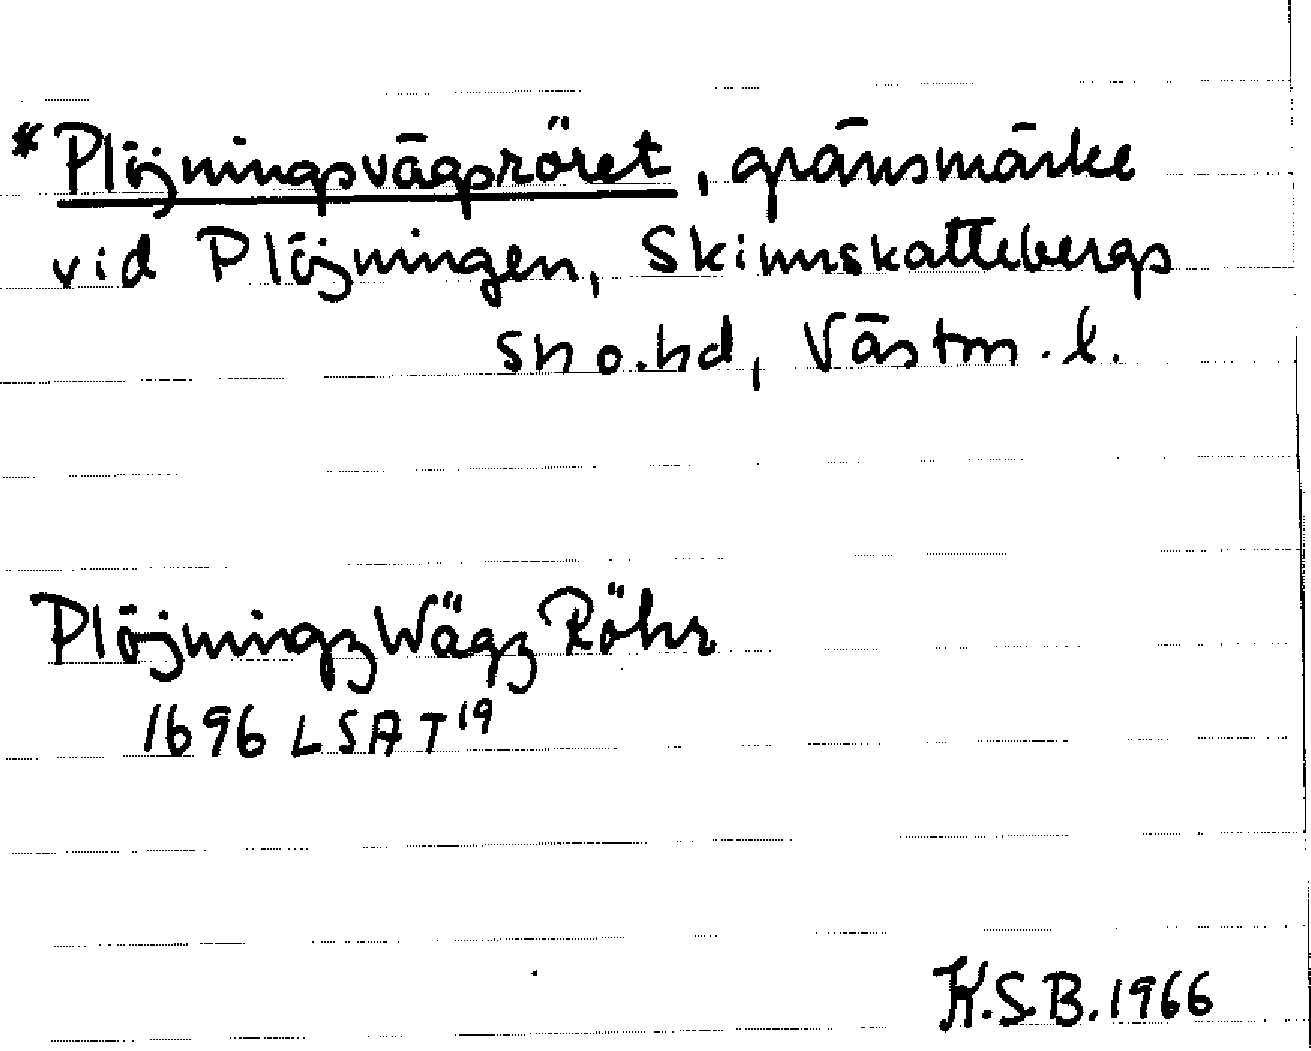 *Plöjningsvägsröret, gränsmärke
vid Plöjningen, Skinnskattebergs
sn o. hd, Västm. l.
PlöjningzWägz Röhr
1696 LSA T¹⁹
K.S.B. 1966